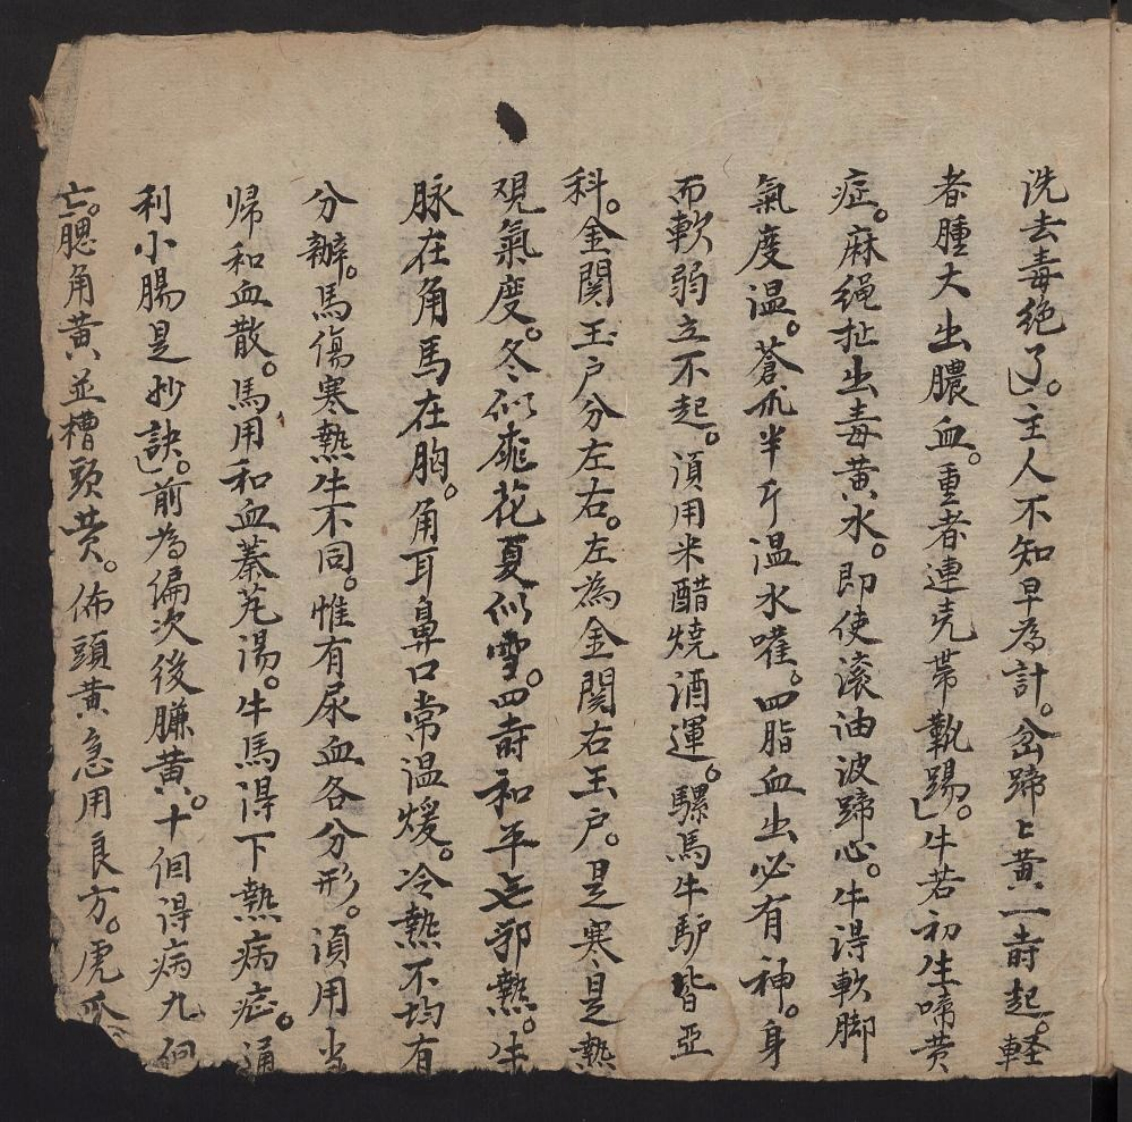 洗去毒绝了。主人不知早為計。岔蹄上黄一時起。軽
者腫大出膿血。重者連壳帯靴踢。牛若初生啼黄
症。麻绳扯出毒黄水。即使滚油波蹄心。牛得軟脚
氣度温。蒼朮半斤温水嚾。四脂血出必有神。身
而軟弱立不起。須用米醋燒酒運。騾馬牛馿皆亞
科。金関玉户分左右。左為金関右玉户。是寒是熱
观氣度。冬似桃花夏似雪。四時和平無邪熱。牛
脉在角馬在胸。角耳鼻口常温煖。冷熱不均有
分辦。馬傷寒熱牛不同。惟有尿血各分形。須用当
帰和血散。馬用和血蓁艽湯。牛馬得下熱病症。通
利小腸是妙訣。前為偏次後臁黄。十個得病九個
亡。腮角黄並槽頭黄。佈頭黄急用良方。虎爪